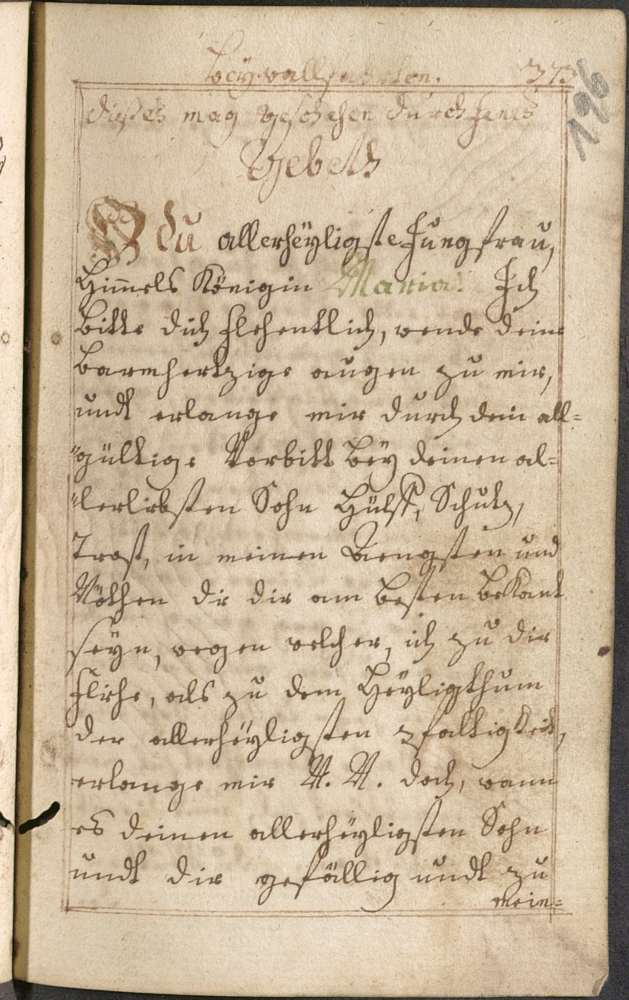 bey wallfahrten. 373
196
dießes mag geschehen durch jenes
Gebett
O du allerheyligste Jungfrau,
Himels Königin Maria! Ich
bitte dich flehentlich, wende deine
barmhertzige augen zu mir,
undt erlange mir durch dein all=
"gültige Vorbitt bey deinen al=
"lerliebsten Sohn Hülff, Schutz,
Trost, in meinen Aengsten und
Nöthen die dir am besten bekant
seyn, wegen welcher, ich zu dir
fliehe, als zu dem Heyligthum
der allerheyligsten 3faltigkeit,
erlange mir N. N. doch, wann
es deinen allerheyligsten Sohn
undt dir gefällig undt zu
mein=